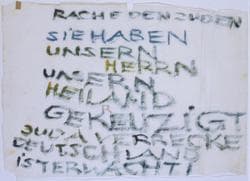 RACHE DEN JUDEN
SiE HABEN
UNSERN
HERRN
UNSERN
HEILAND
GEKEUZIGT
JUDA VERRECKE
DEUTSCHLAND
iST ERWACHT!